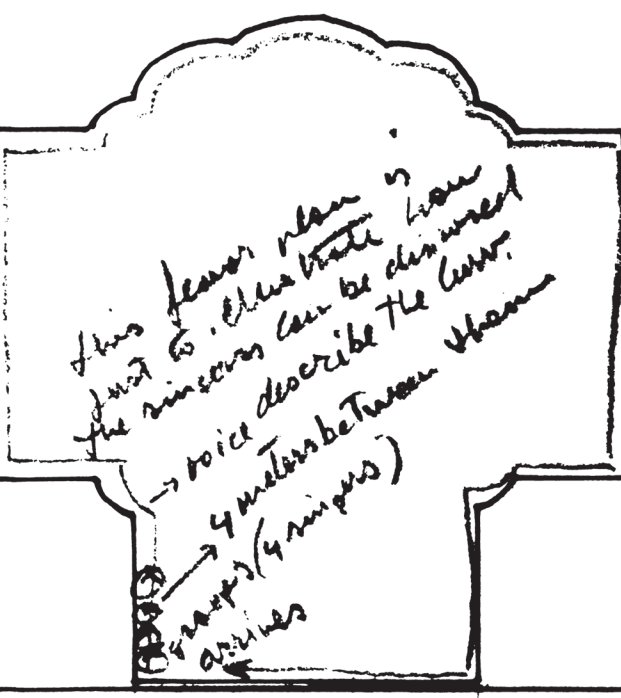 this floor plan is
just to illustrate how
the singers can be disposed
→ voice describe the curve.
→ 4 meters between them
groups (4 singers)
arrives